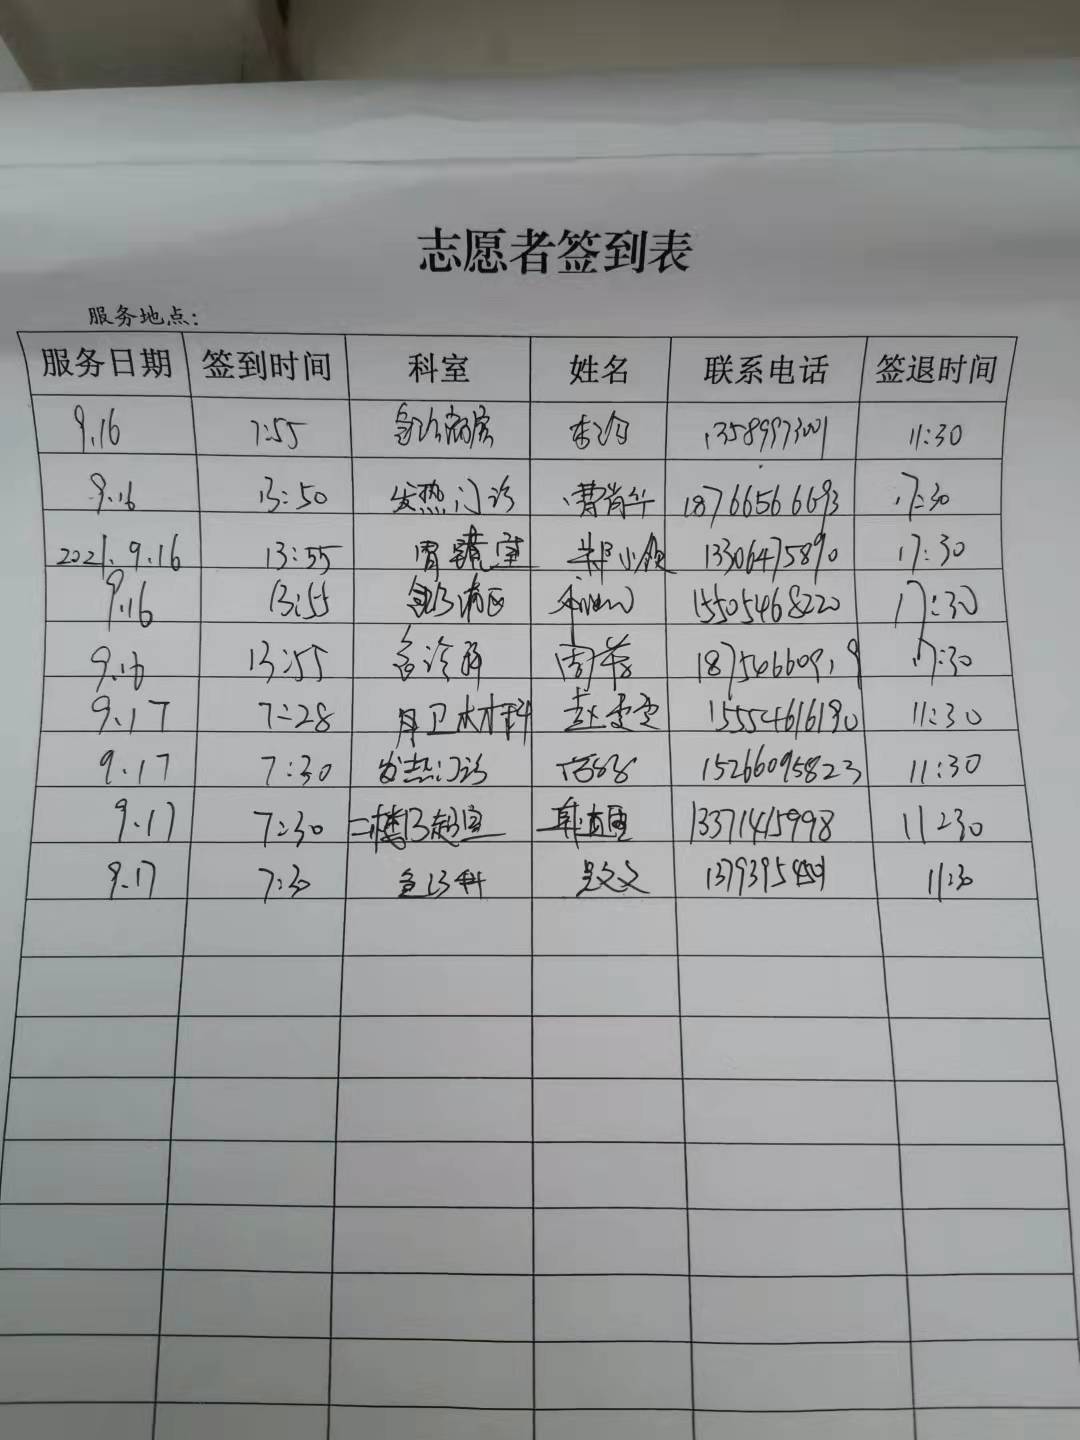 志愿者签到表
服务地点:
服务日期 签到时间 科室 姓名 联系电话 签退时间
9.16 7:55 急诊病房 13589973001 11:30
9.16 13:50 发热门诊 曹肖华 18766566693 17:30
2021.9.16 13:55 胃镜室 13306475890 17:30
9.16 13:55 15505468220 17:30
9.16 13:55 急诊科 周蓉 17:30
9.17 7:28 卫材科 赵雯雯 15554616190 11:30
9.17 7:30 发热门诊 15266095823 11:30
9.17 7:30 二楼 13371415998 11:30
9.17 7:30 急诊科 吴文文 11:30